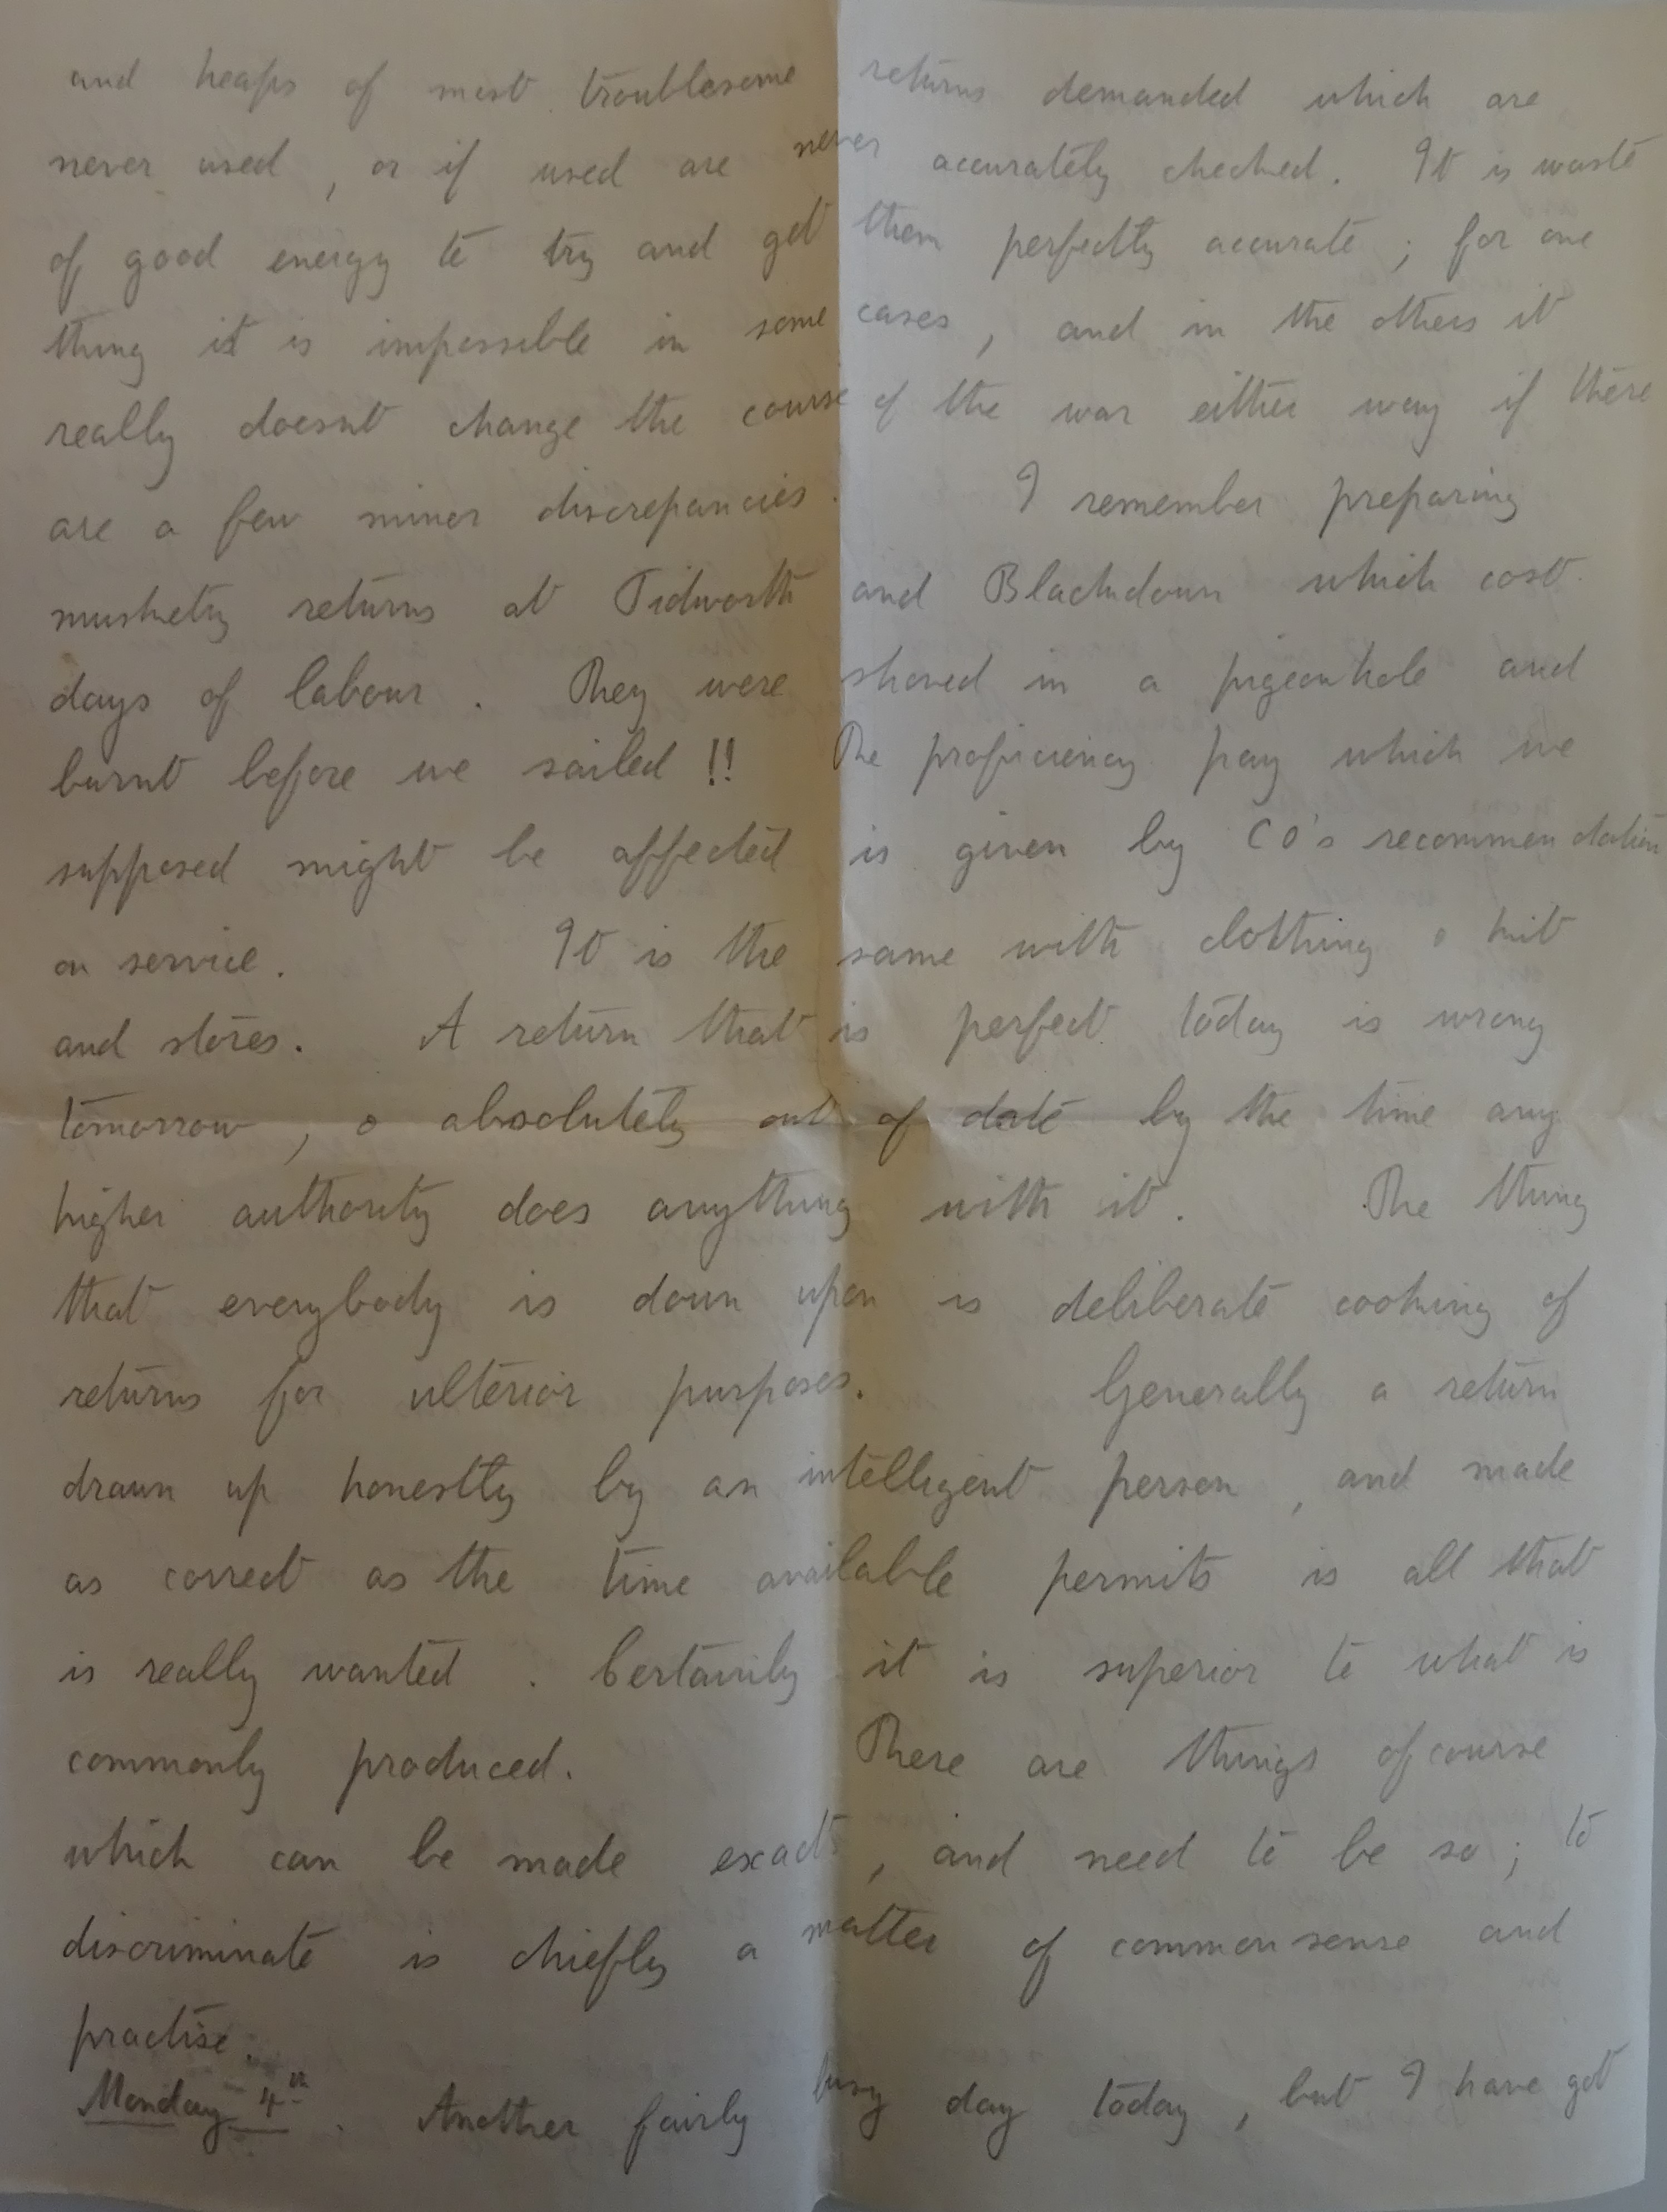 and heaps of most troublesome returns demanded which are
never used, or if used are never accurately checked. It is waste
of good energy to try and get them perfectly accurate; for one
thing it is impossible in some cases, and in the others it
really doesnt change the course of the war either way if there
are a few minor discrepancies. I remember preparing
musketry returns at Tidworth and Blackdown which cost
days of labour. They were shoved in a pigeonhole and
burnt before we sailed!! The proficiency pay which we
supposed might be affected is given by CO's recommendation
on service. It is the same with clothing & kit
and stores. A return that is perfect today is wrong
tomorrow, & absolutely out of date by the time any
higher authority does anything with it. The thing
that everybody is down upon is deliberate cooking of
returns for ulterior purposes. Generally a return
drawn up honestly by an intelligent person, and made
as correct as the time available permits is all that
is really wanted. Certainly it is superior to what is
commonly produced. There are things of course
which can be made exact, and need to be so; to
discriminate is chiefly a matter of common sense and
practise.
Monday 4th. Another fairly busy day today, but I have got